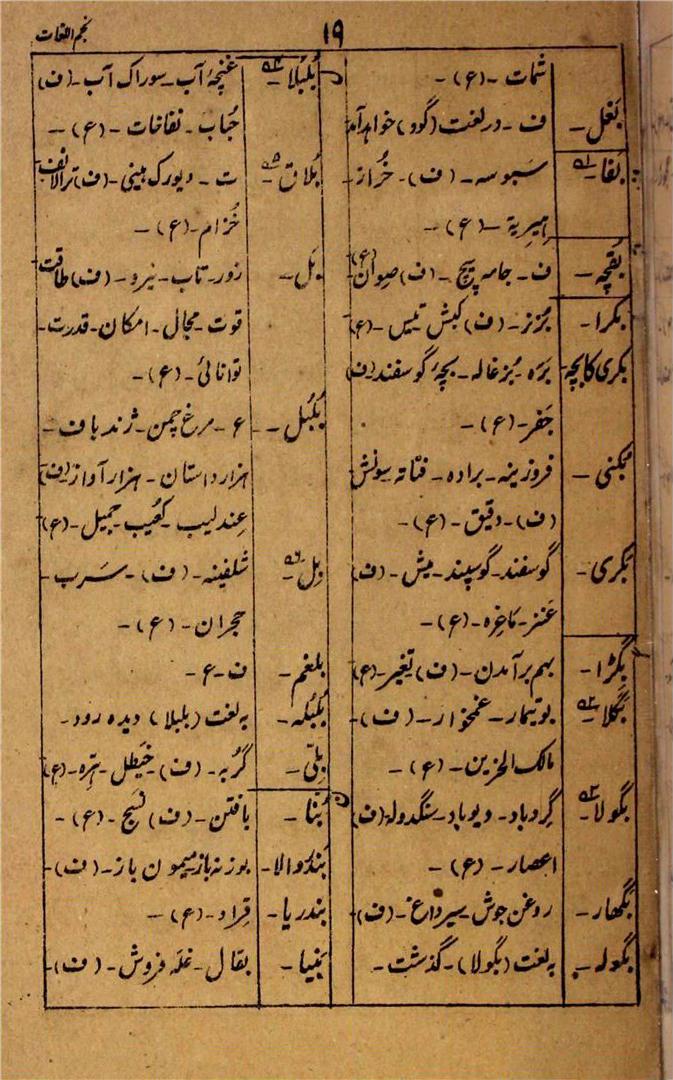 نجم اللغات
۱۹
شمات - (ع) -
بغل - ف - در لغت (گود) خواهد آمد
بفا - ۵۱ سبوسه - (ف) - خُراز -
اِبرِیة - (ع) -
بقچه - ف - جامه پیچ - (ف) صِوان (ع)
بکرا - بُزنر - (ف) کبش تیس - (ع)
بکری کا بچہ - بَرّہ - بُزغاله - بچۂ گوسفند (ف)
جَفر - (ع) -
بُکنی - فروزینه - براده - فتاته سونش
(ف) - دقیق - (ع) -
بکری - گوسفند - گوسپند - میش - (ف)
عَنز - ماعِزہ - (ع) -
بگڑا - بهم برآمدن - (ف) تغیّر - (ع)
بگلا - ۵۲ بوتیمار - غمخوار - (ف) -
مالک الحزین - (ع) -
بگولا - ۵۳ گِردباد - دیوباد - سنگدولہ (ف)
اعصار - (ع) -
بگھار - روغن جوش - سیرداغ - (ف) -
بگولہ - بہ لغت (بگولا) - گذشت -
بُلبُلا - ۵۴ غنچۂ آب - سوراک آب - (ف)
حُباب - نفاخات - (ع) -
بُلاق - ۵۵ ت - دیورک بینی - (ف) ترالانف
خُزام - (ع) -
بَل - زور - تاب - نیرو - (ف) طاقت
قوت - مجال - امکان - قدرت -
توانائی - (ع) -
بُلبُل - ع - مرغ چمن - ژند باف -
هزار داستان - هزار آواز (ف)
عندلیب - کعیب - جمیل - (ع)
بِل - ۵۶ شلفینه - (ف) - سَرب -
حجران - (ع) -
بلغم - ف - ع -
بُلبُلہ - بہ لغت (بلبلا) دیده رود -
بلّی - گُربه - (ف) - خَیطل - ہِرّه - (ع)
بُننا - بافتن - (ف) نسج - (ع) -
بَندُوالا - بوزنه باز میمون باز - (ف) -
بندریا - قِراد - (ع) -
بَنیا - بقال - غلّه فروش - (ف) -